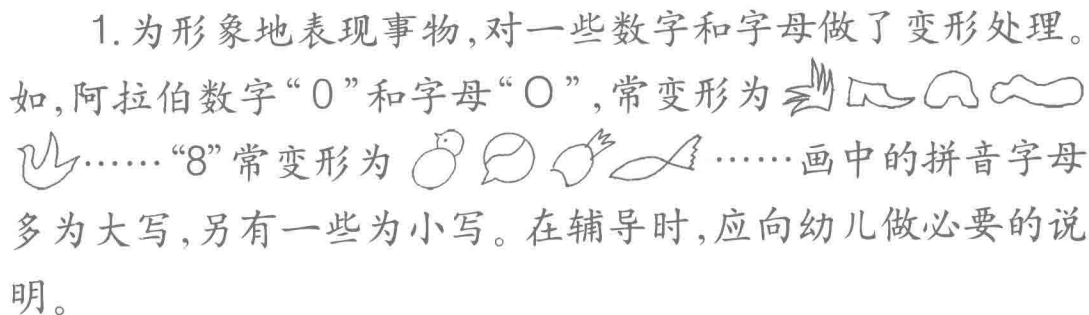 1.为形象地表现事物,对一些数字和字母做了变形处理。
如,阿拉伯数字“0”和字母“O”,常变形为
……“8”常变形为 ……画中的拼音字母
多为大写,另有一些为小写。在辅导时,应向幼儿做必要的说
明。